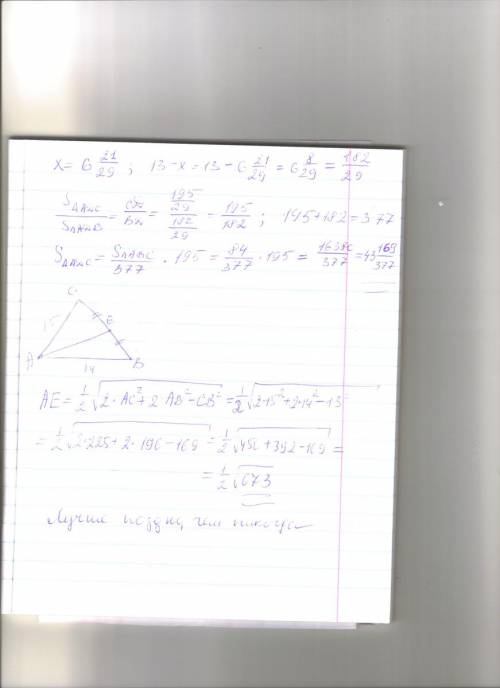 x = 6 21/29 ; 13 - x = 13 - 6 21/29 = 6 8/29 = 182/29
= (195/29)/(182/29) = 195/182 ; 195 + 182 = 377
= S△ABC/377 · 195 = 84/377 · 195 = 16380/377 = 43 169/377
C
E
15
A
B
14
AE = 1/2 √(2·AC² + 2·AB² - CB²) = 1/2 √(2·15² + 2·14² - 13²
= 1/2 √(2·225 + 2·196 - 169) = 1/2 √(450 + 392 - 169) =
= 1/2 √673
Лучше поздно чем никогда